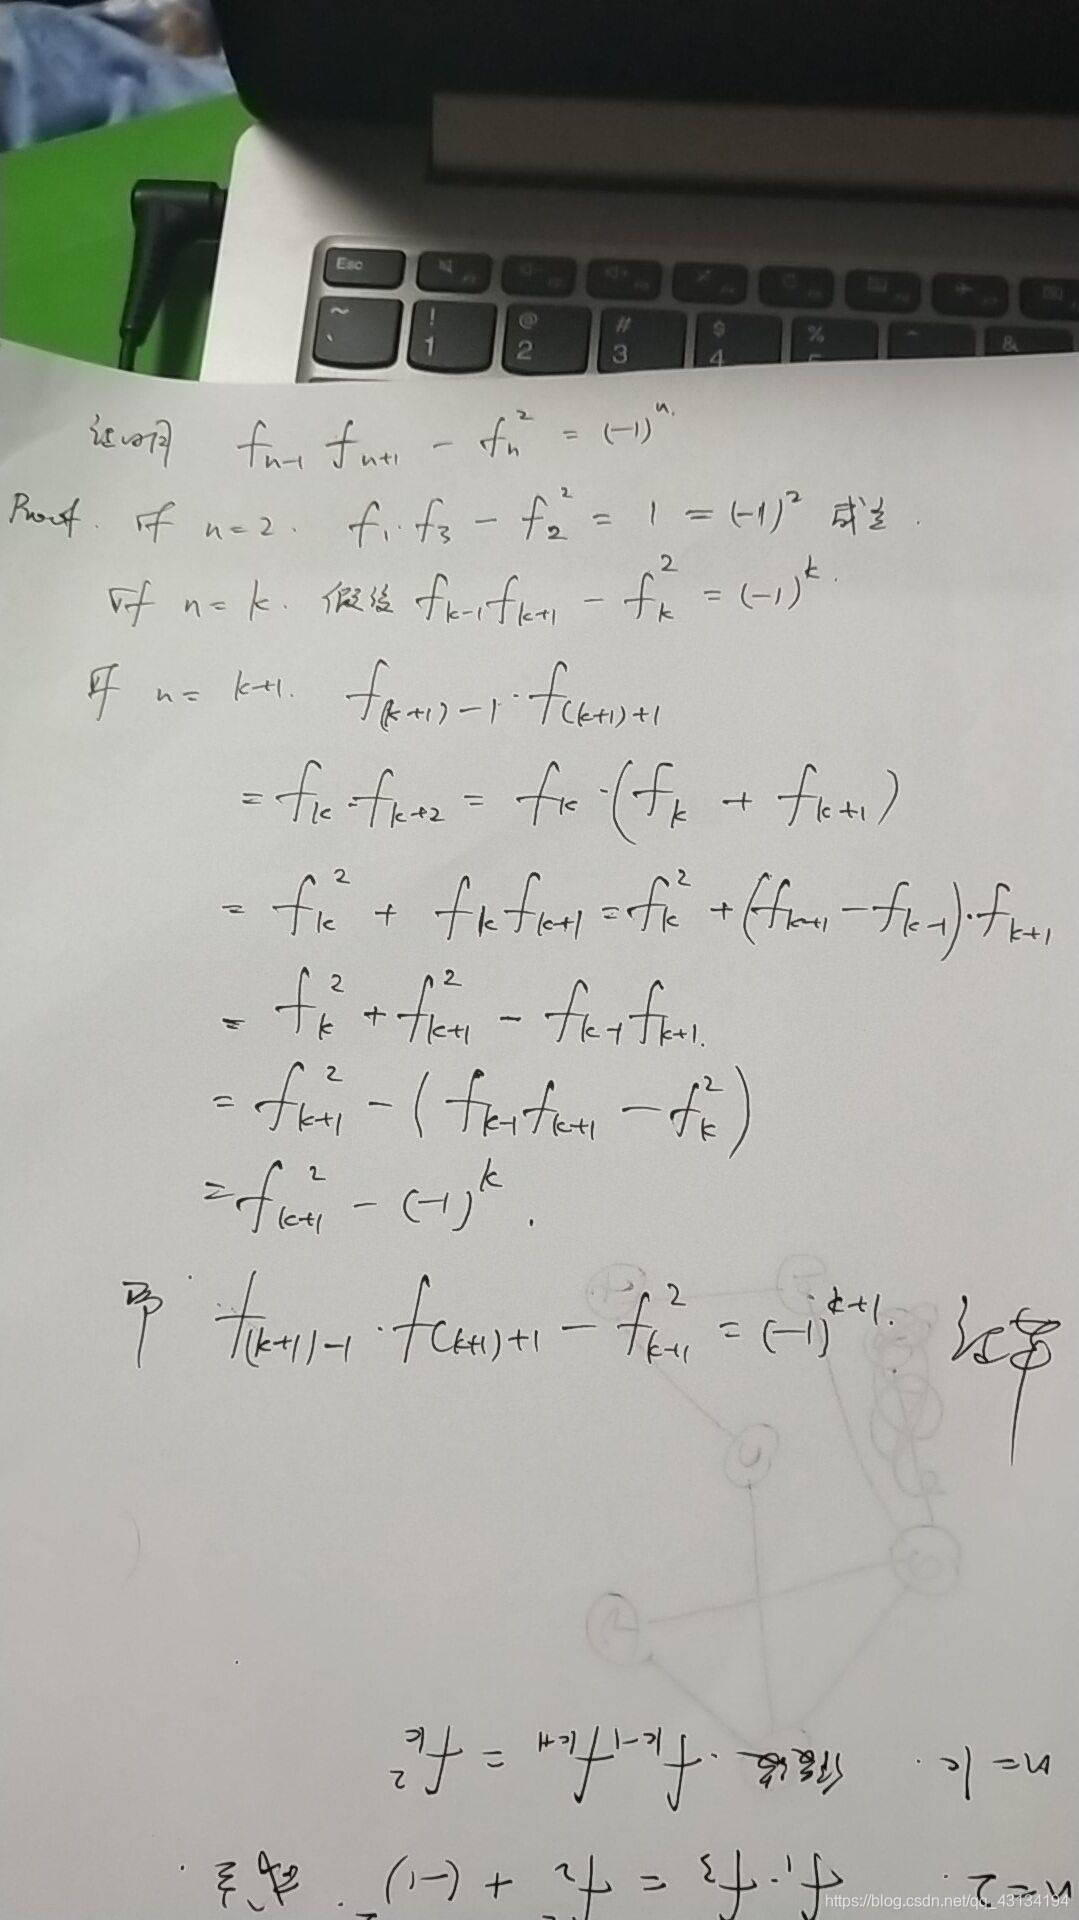 Esc
~ ! @ # $ % ^ &
` 1 2 3 4 5
证明 f_{n-1} f_{n+1} - f_n^2 = (-1)^n.
Proof. 对 n=2. f_1·f_3 - f_2^2 = 1 = (-1)^2 成立.
对 n=k. 假设 f_{k-1}f_{k+1} - f_k^2 = (-1)^k.
对 n=k+1. f_{(k+1)-1}·f_{(k+1)+1}
= f_k·f_{k+2} = f_k·(f_k + f_{k+1})
= f_k^2 + f_k f_{k+1} = f_k^2 + (f_{k+1} - f_{k-1})·f_{k+1}
= f_k^2 + f_{k+1}^2 - f_{k-1}f_{k+1}.
= f_{k+1}^2 - (f_{k-1}f_{k+1} - f_k^2)
= f_{k+1}^2 - (-1)^k.
即 f_{(k+1)-1}·f_{(k+1)+1} - f_{k+1}^2 = (-1)^{k+1}. 证毕
n=k. 假设. f_{k-1}f_{k+1} = f_k^2
n=2. f_1·f_3 = f_2^2 + (-1)^2. 成立.
https://blog.csdn.net/qq_43134194